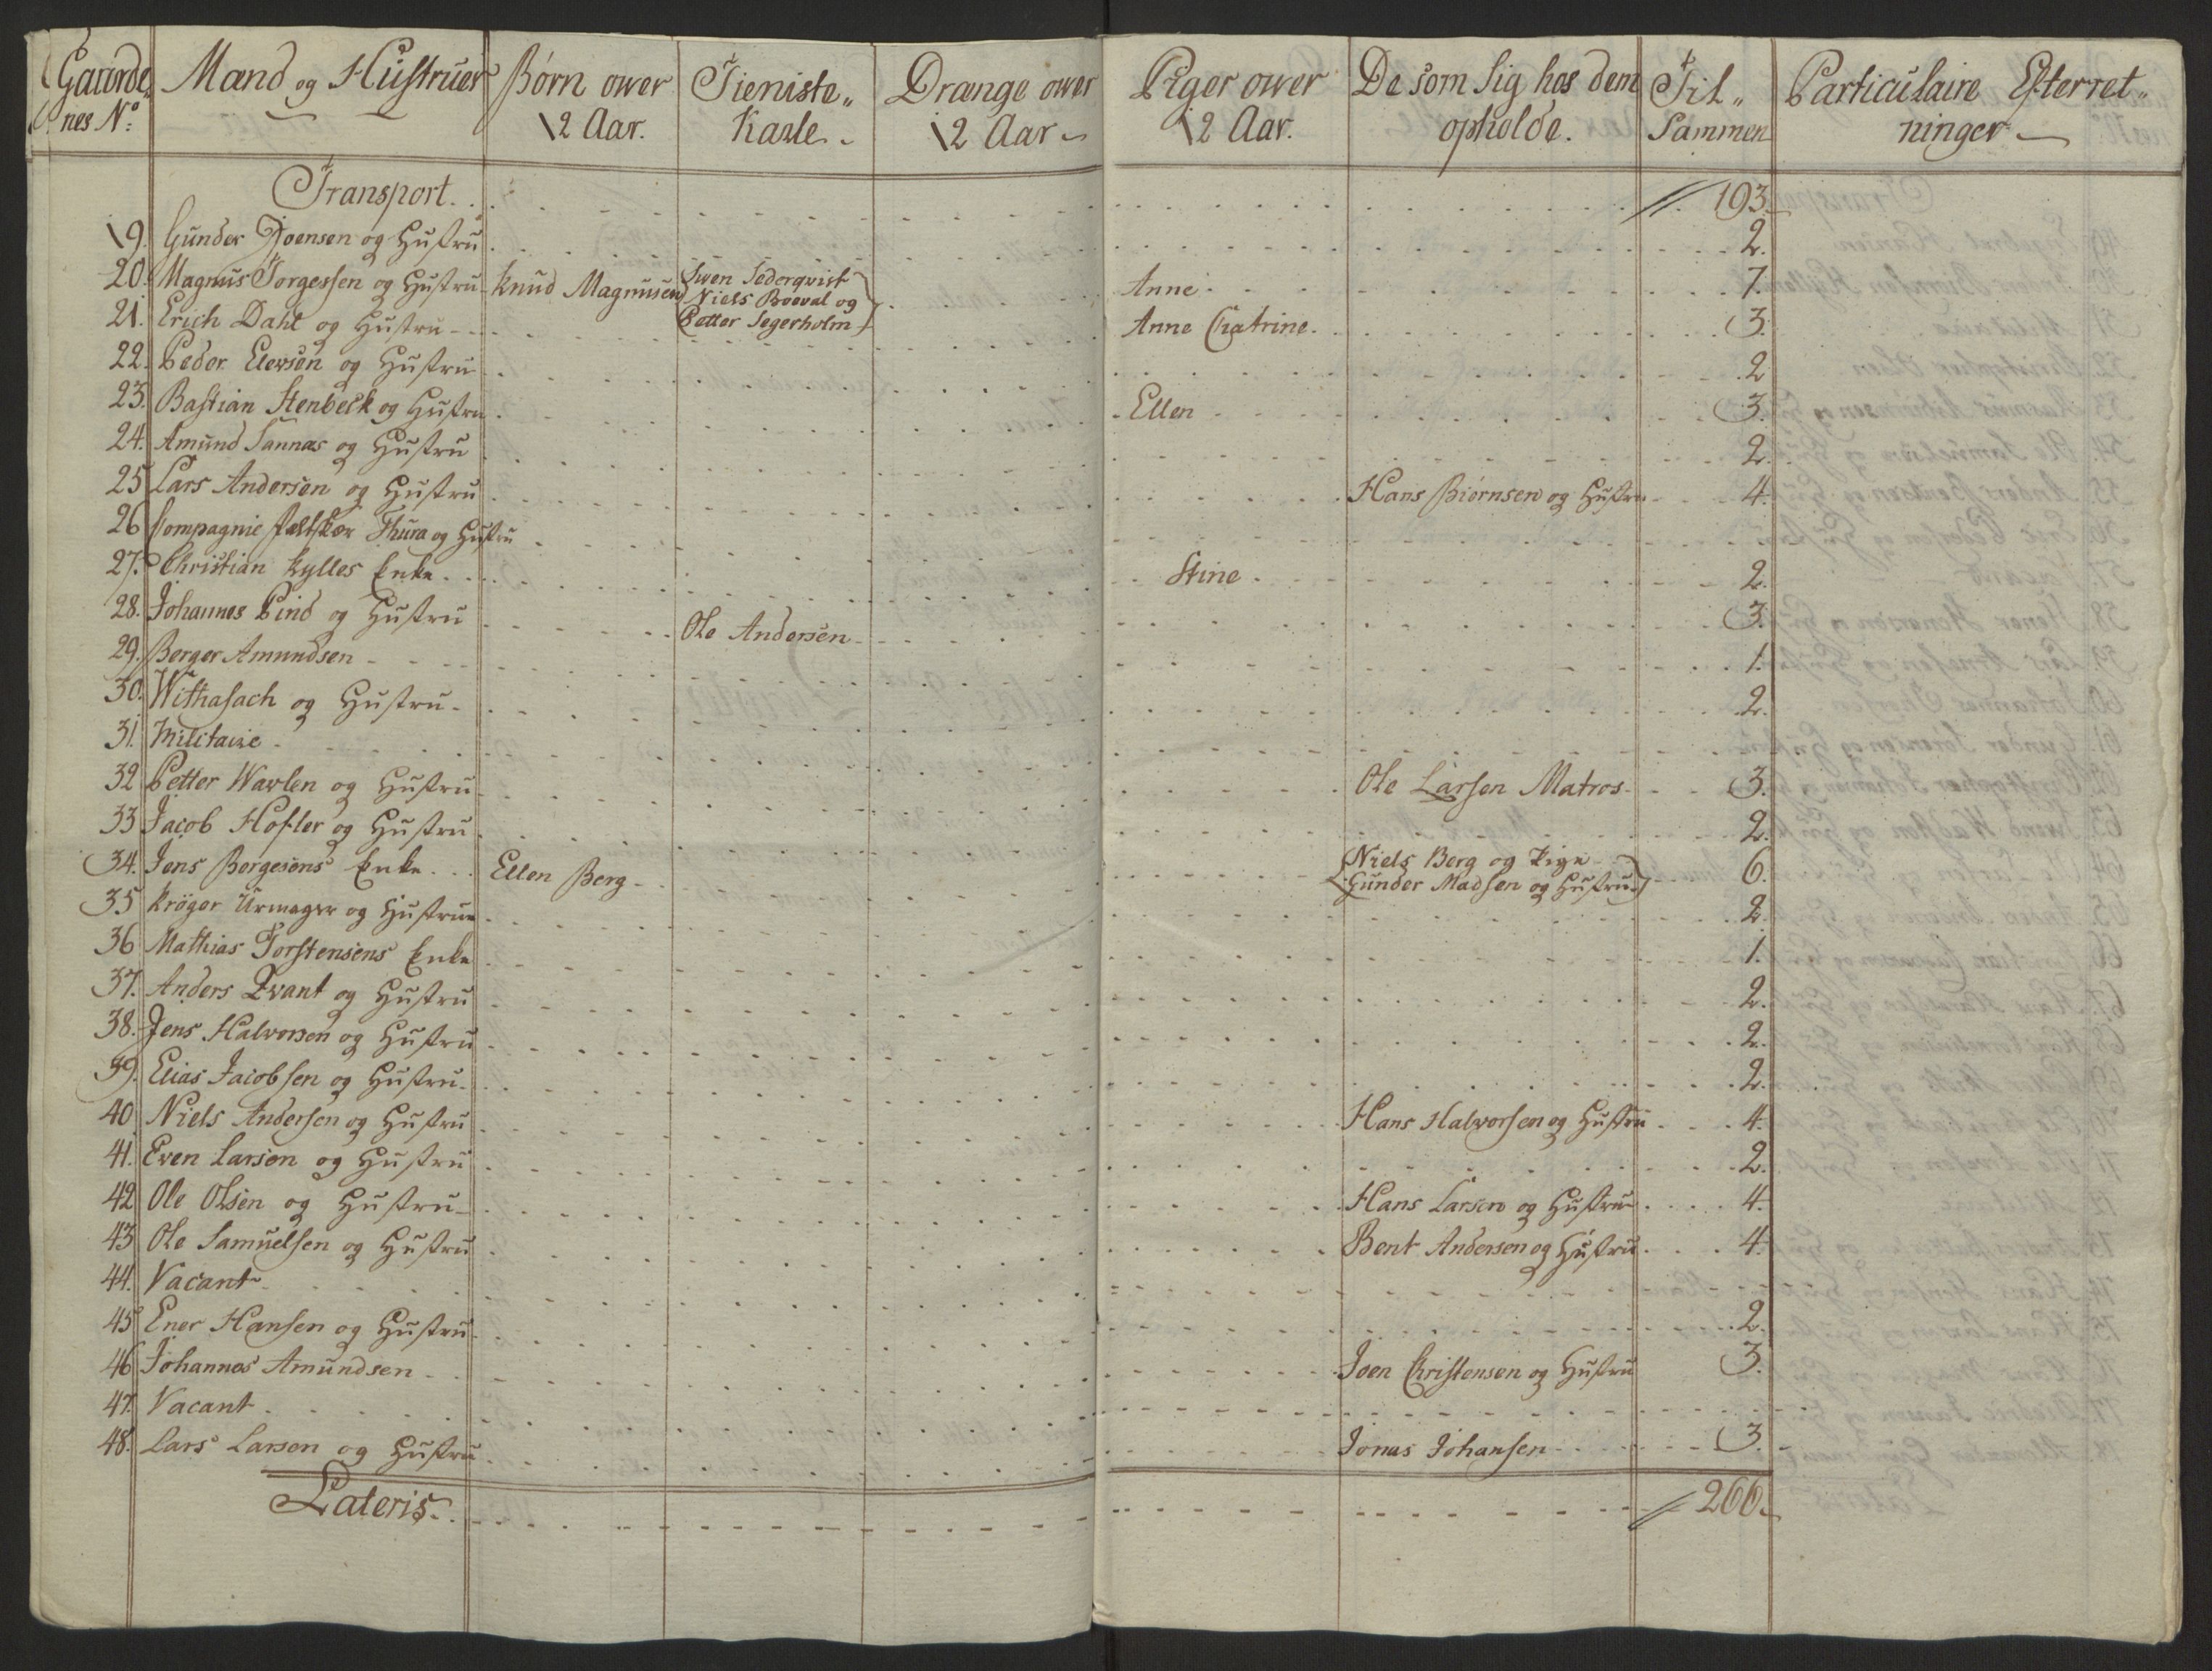 Gaarde, nes No Mænd og Hustruer Børn over 12 Aar. Tieniste, Karle Drænge over 12 Aar Piger over 12 Aar. De som sig hos dem opholde. Til, Sammen Particulaire Efterret, ninger
Transport 193.
19. Gunder Joensen og Hustru 2.
20. Magnus Torgessen og Hustru Knud Magnusen Swen Sederqvist Niels Boeval og Petter Segerholm Anne 7.
21. Erich Dahl og Hustru Anne Chatrine 3.
22. Peder Elersen og Hustru 2
23. Bastian Stenbeck og Hustru Ellen 3.
24. Amund Sannæs og Hustru 2
25 Lars Andersen og Hustru Hans Biørnsen og Hustru 4
26 Compagnie Fæltskær Thura og Hustru
27. Christian Kylles Enke Stine 2.
28. Johannes Pind og Hustru Ole Andersen 3.
29. Berger Amundsen 1.
30. Withasach og Hustru 2.
31. Militaire
32 Petter Warlen og Hustru Ole Larsen Matros 3.
33 Jacob Hofler og Hustru 2.
34. Jens Børgesens Enke Ellen Berg Niels Berg og Pige Gunder Madsen og Hustru 6.
35 Krøger Urmager og Hustrue 2.
36 Mathias Torstensens Enke 1.
37. Anders Qvant og Hustru 2.
38. Jens Halvorsen og Hustru 2.
39. Elias Jacobsen og Hustru 2.
40 Niels Andersen og Hustru Hans Halvorsen og Hustru 4.
41. Even Larsen og Hustru 2.
42 Ole Olsen og Hustru Hans Larsen og Hustrue 4.
43 Ole Samuelsen og Hustru Bent Andersen og Hustru 4.
44. Vacant
45 Ener Hansen og Hustru 2.
46 Johannes Amundsen Joen Christensen og Hustru 3.
47. Vacant
48. Lars Larsen og Hustru Jonas Johansen 3.
Lateris 266.